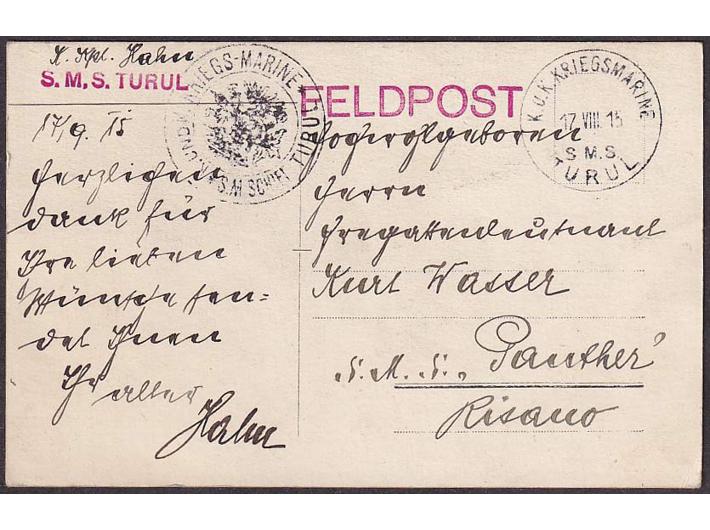 K. Kpl. Hahn
S.M.S. TURUL
KRIEGS-MARINE
S.M. SCHIFF TURUL
FELDPOST
K.U.K. KRIEGSMARINE
17 VIII 15
S.M.S.
TURUL
17/9 15
Herzlichen
Dank für
Ihre lieben
Wünsche sen=
det Ihnen
Ihr
alter
Hahn
Hochwohlgeboren
Herrn
Fregattenleutnant
Kurt Wasser
S. M. S. „Panther“
Risano